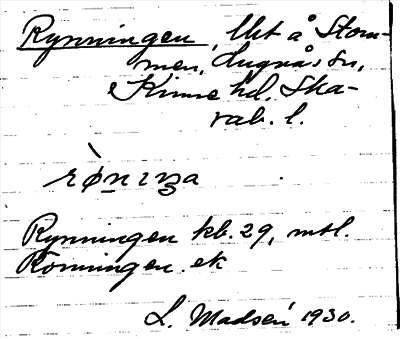 Rynningen, lht å Stom-
men, Lugnås sn,
Kinne hd. Ska-
rab. l.
rø̀nıŋa
Rynningen kb. 29, mtl
Rönningen. ek
L. Madsén 1930.